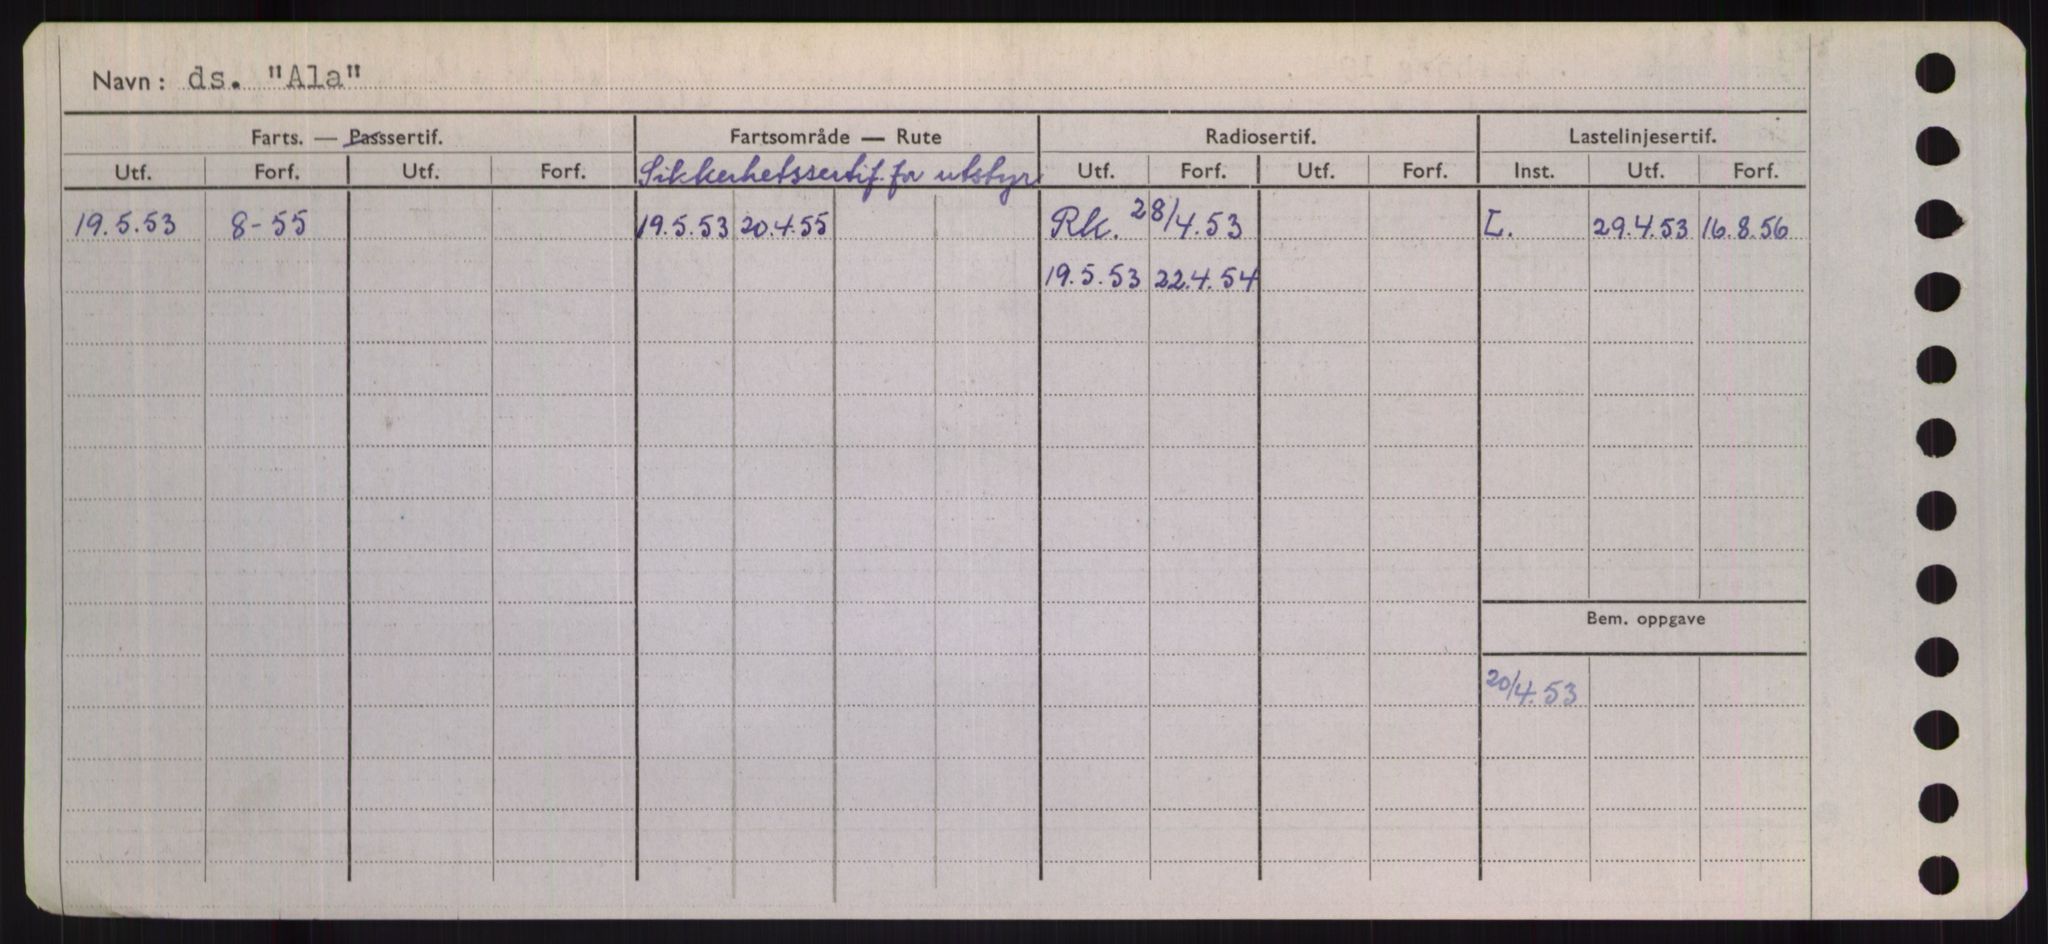 Navn: ds. "Ala"
Farts. — Passsertif. Fartsområde — Rute Radiosertif. Lastelinjesertif.
Utf. Forf. Utf. Forf. Sikkerhetssertif. for utstyr Utf. Forf. Utf. Forf. Inst. Utf. Forf.
19.5.53 8-55 19.5.53 20.4.55 Rk. 28/4.53 L. 29.4.53 16.8.56
19.5.53 22.4.54
Bem. oppgave
20/4.53